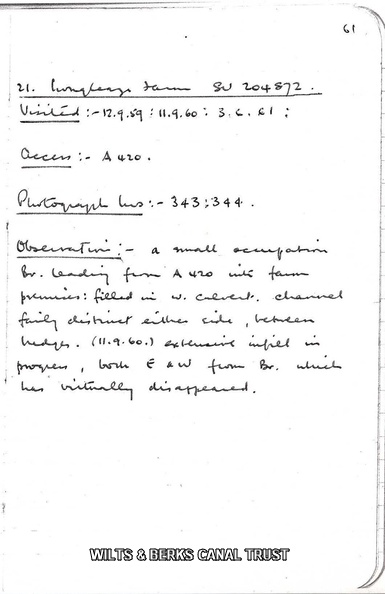 61
21. Longleaze Farm SU 204872.
Visited :- 12.9.59 : 11.9.60 : 3.6.61 :
Access :- A 420.
Photograph Nos :- 343 : 344.
Observation :- a small occupation
Br. leading from A 420 into farm
premises : filled in w. culvert. channel
fairly distinct either side, between
hedges. (11.9.60.) extensive infill in
progress, both E & W from Br. which
has virtually disappeared.
WILTS & BERKS CANAL TRUST